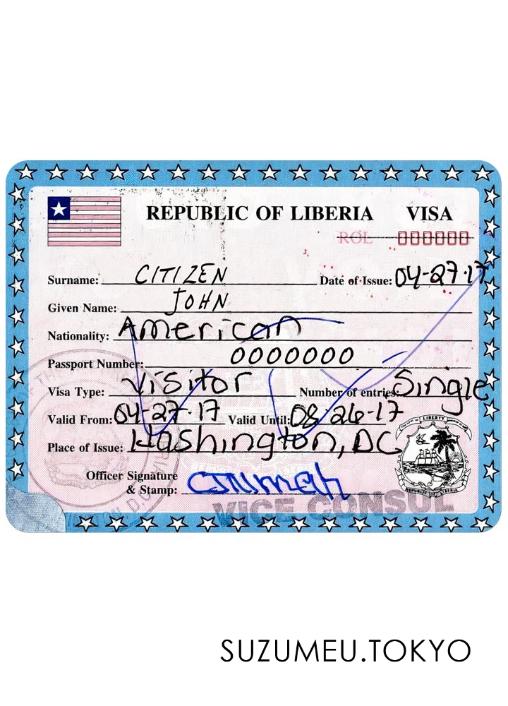 REPUBLIC OF LIBERIA VISA
ROL 000000
Surname: CITIZEN Date of Issue: 04-27-17
Given Name: JOHN
Nationality: American
Passport Number: 0000000
Visa Type: Visitor Number of entries: Single
Valid From: 04-27-17 Valid Until: 08-26-17
Place of Issue: Washington, DC
Officer Signature
& Stamp:
VICE CONSUL
SUZUMEU.TOKYO